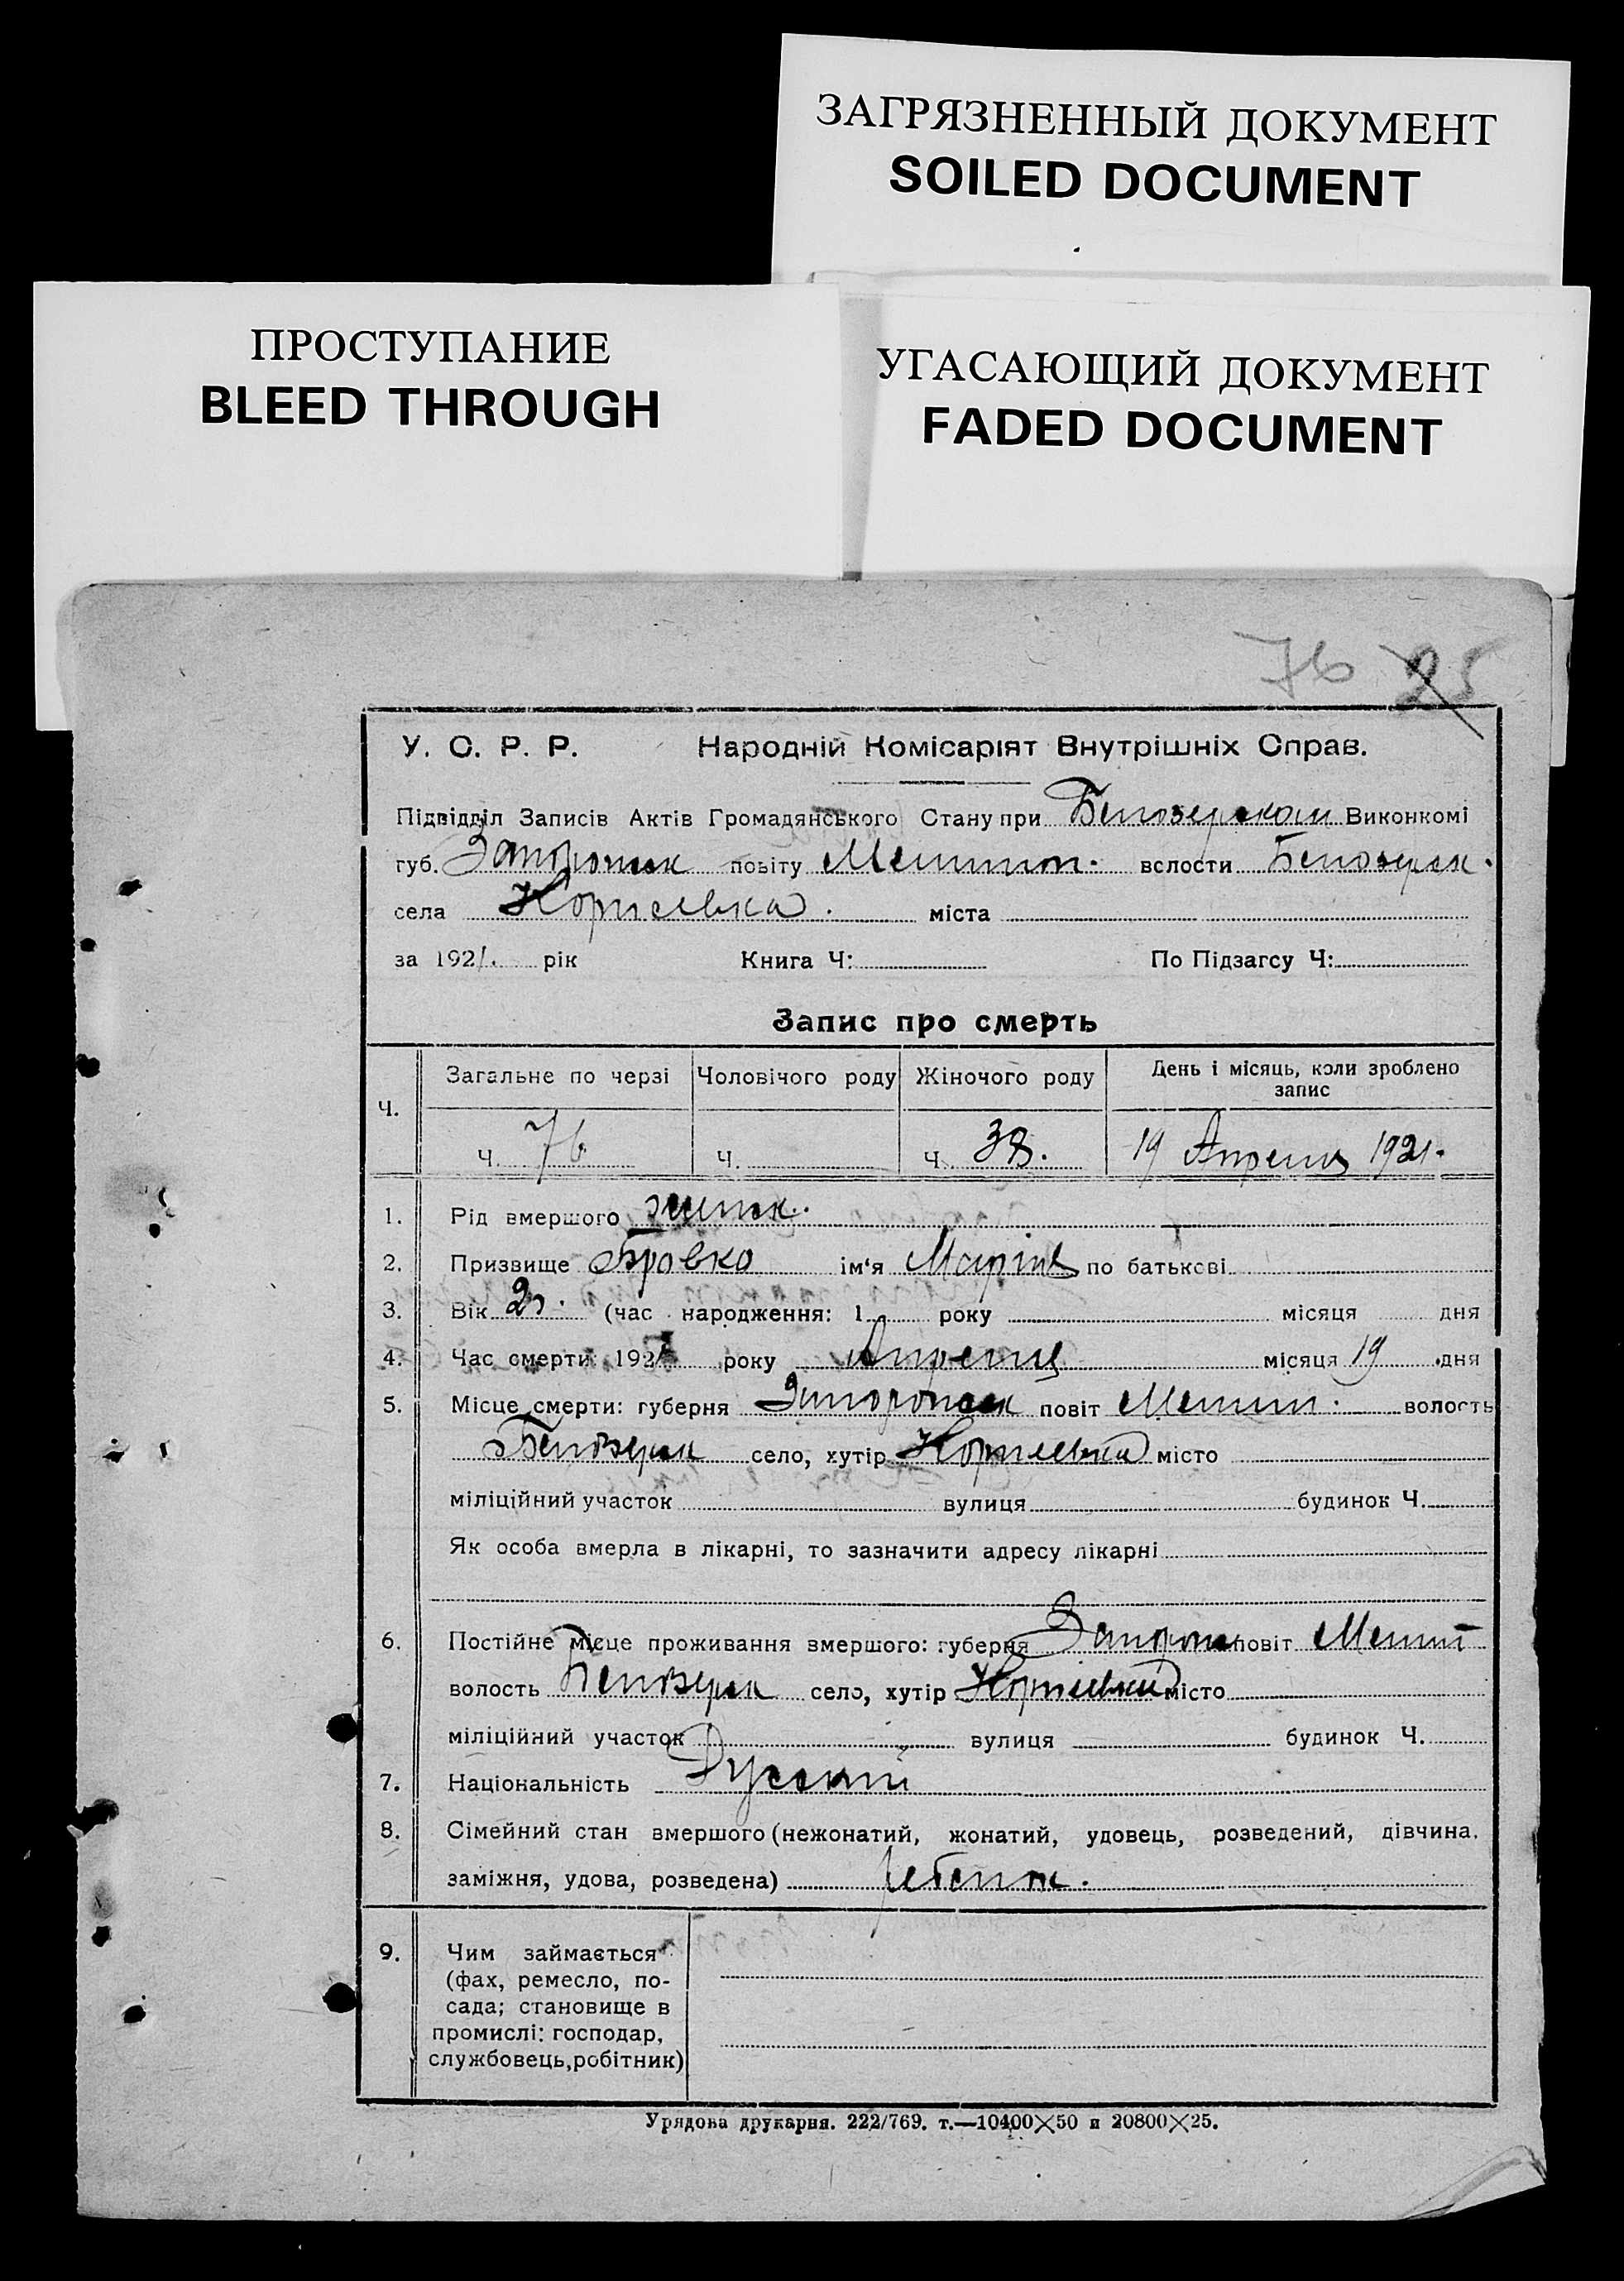 ЗАГРЯЗНЕННЫЙ ДОКУМЕНТ
SOILED DOCUMENT
ПРОСТУПАНИЕ
BLEED THROUGH
УГАСАЮЩИЙ ДОКУМЕНТ
FADED DOCUMENT
76 25
У. С. Р. Р. Народній Комісаріят Внутрішніх Справ.
Підвідділ Записів Актів Громадянського Стану при Белозерском Виконкомі
губ. Запорожск повіту Мелитоп. волости Белозерск.
села міста
за 1921. рік Книга Ч: По Підзагсу Ч:
Запис про смерть
Ч. Загальне по черзі Чоловічого роду Жіночого роду День і місяць, коли зроблено запис
Ч. 76 Ч. Ч. 38. 19 Апреля 1921.
1. Рід вмершого женск.
2. Призвище Бровко ім'я Марія по батькові
3. Вік 2 г. (час народження: 1 року місяця дня
4. Час смерти: 1921 року Апреля місяця 19 дня
5. Місце смерти: губерня Запорожск повіт Мелит. волость
Белозерск село, хутір місто
міліційний участок вулиця будинок Ч.
Як особа вмерла в лікарні, то зазначити адресу лікарні
6. Постійне місце проживання вмершого: губерня Запорож повіт Мелит
волость Белозерск село, хутір місто
міліційний участок вулиця будинок Ч.
7. Національність Русский
8. Сімейний стан вмершого (нежонатий, жонатий, удовець, розведений, дівчина,
заміжня, удова, розведена) ребенок.
9. Чим займається
(фах, ремесло, по-
сада; становище в
промислі: господар,
службовець, робітник)
Урядова друкарня. 222/769. т.—10400×50 и 20800×25.